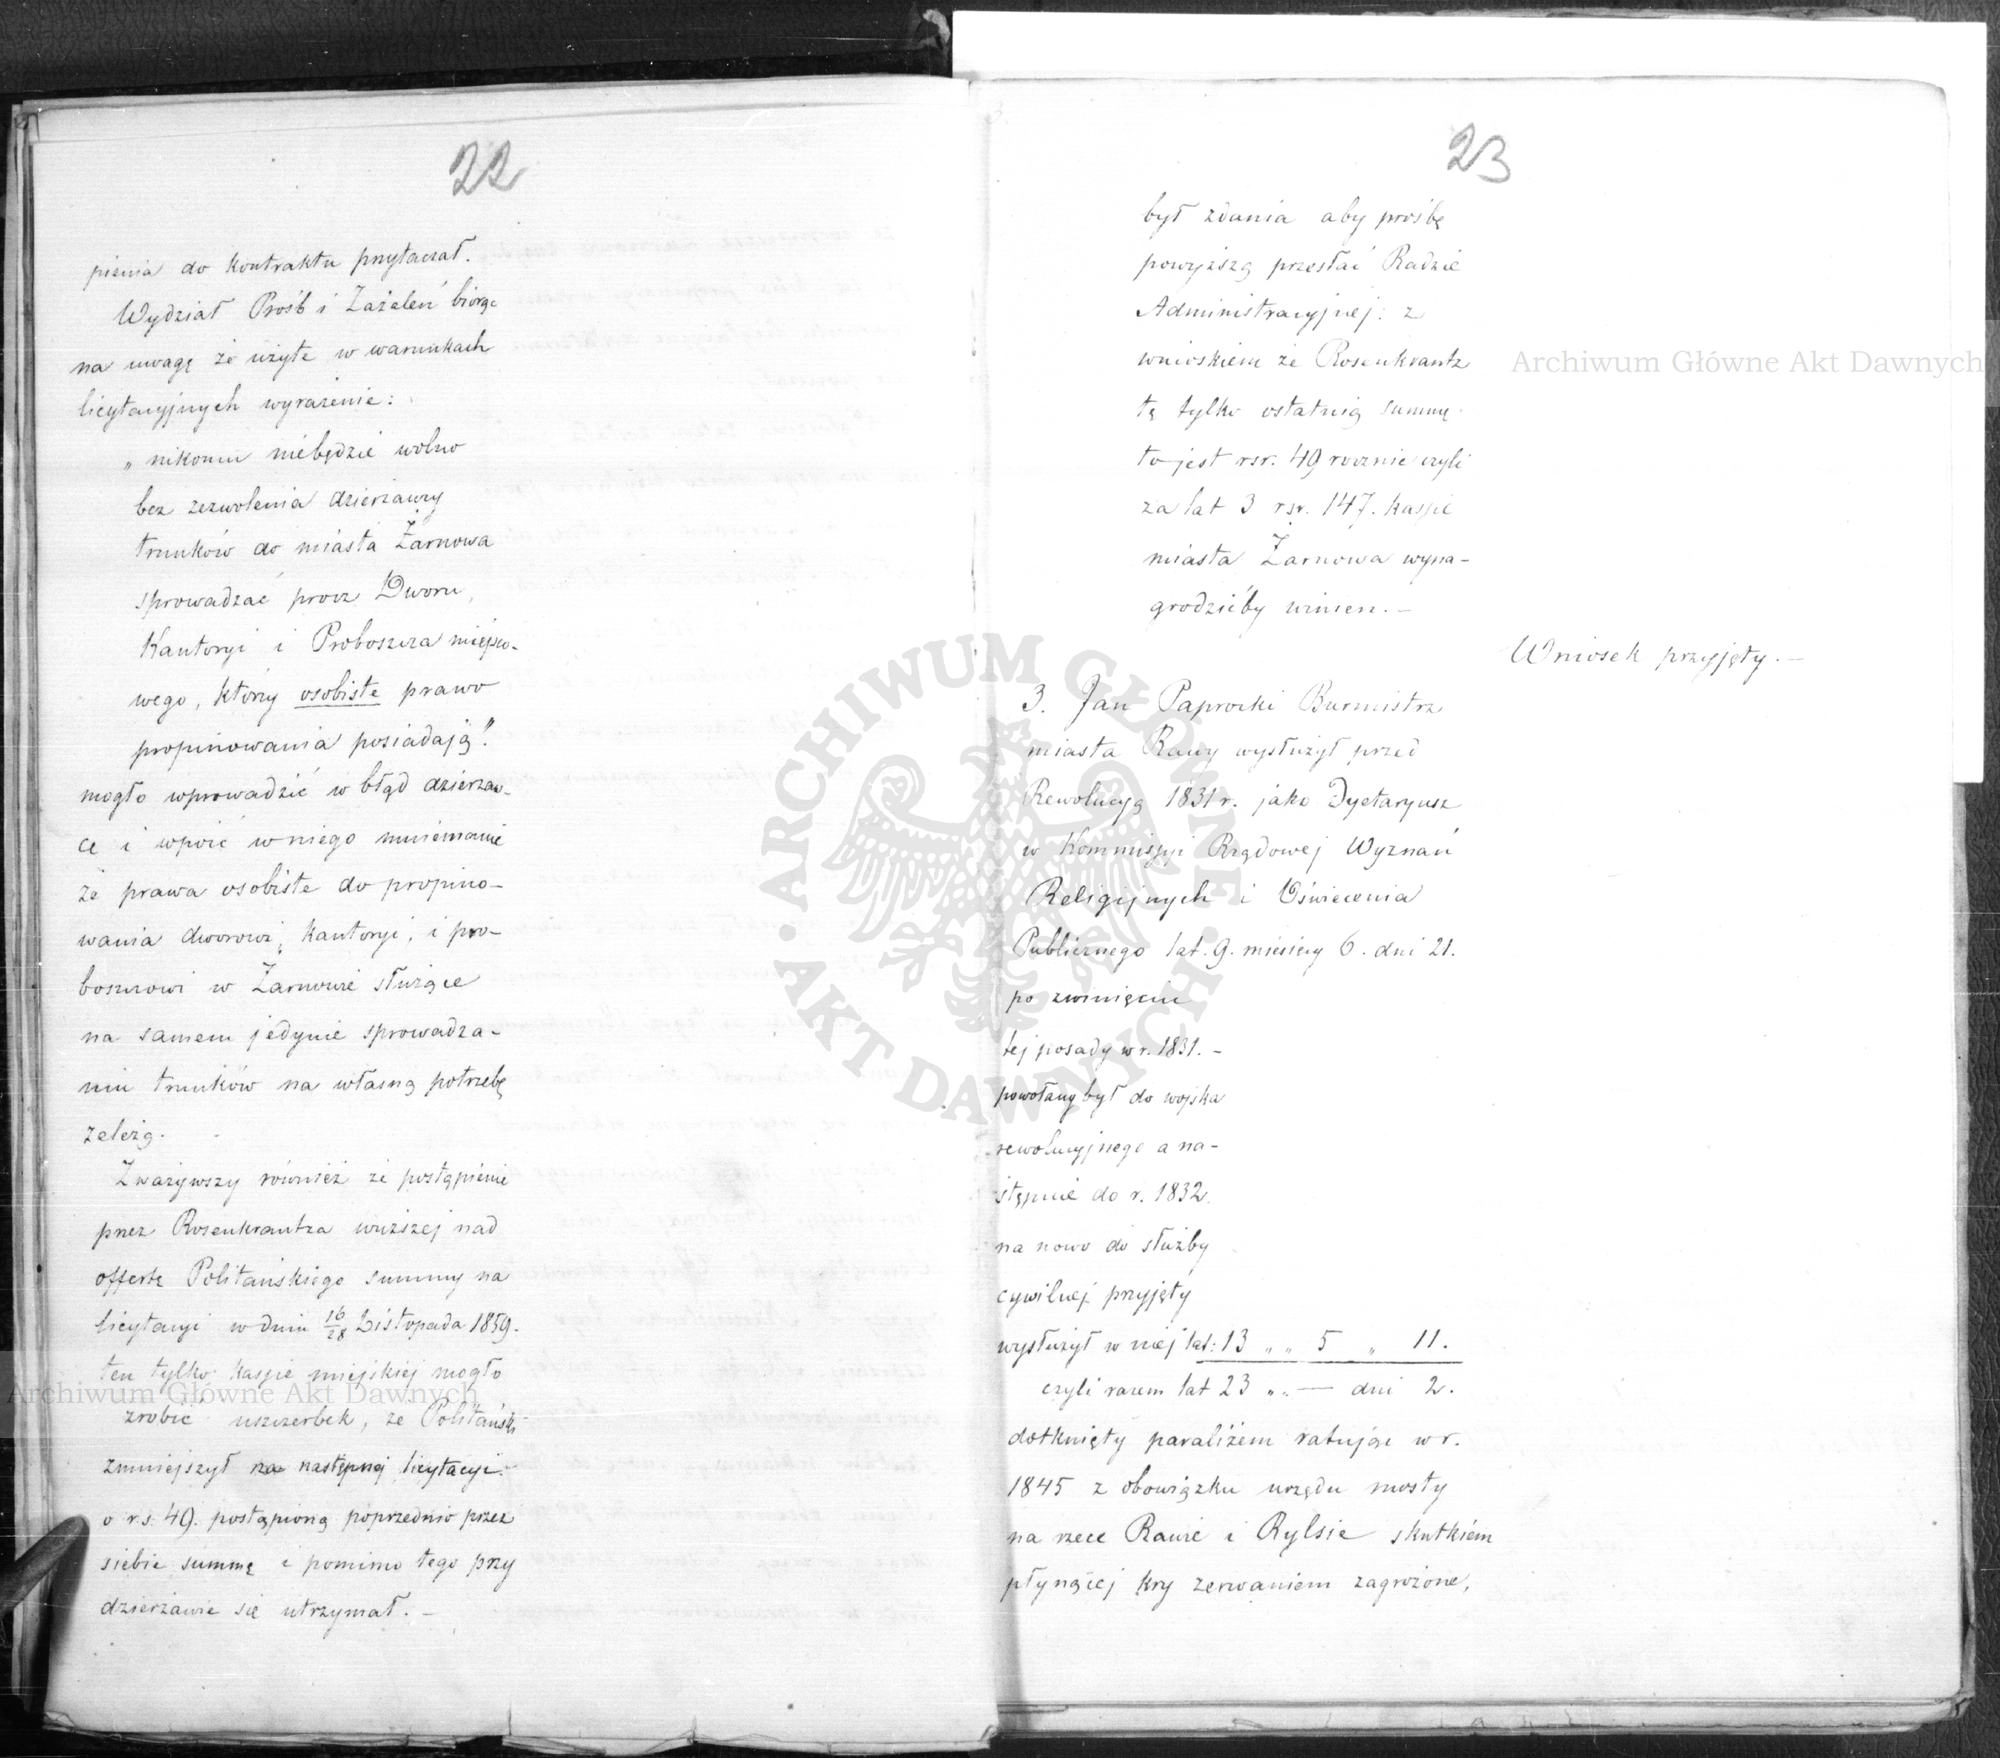 22
pienia do kontraktu przytaczał.
Wydział Próśb i Zażaleń biorąc
na uwagę że użyte w warunkach
licytacyjnych wyrażenie:
„nikomu niebędzie wolno
bez zezwolenia dzierżawcy
trunków do miasta Żarnowa
sprowadzać procz Dworu,
Kantoryi i Proboszcza miejsco-
wego, którzy osobiste prawo
propinowania posiadają".
mogło wprowadzić w błąd dzierżaw-
cę i wpoić w niego mniemanie
że prawa osobiste do propino-
wania dworowi, kantoryi, i pro-
boszczowi w Żarnowie służące
na samem jedynie sprowadza-
niu trunków na własną potrzebę
zależą.
Zważywszy również że postąpienie
przez Rosenkrantza wyższej nad
offertę Politańskiego summy na
licytacyi w dniu 16/28 Listopada 1859.
ten tylko kassie miejskiej mogło
zrobić uszczerbek, że Politański
zmniejszył na następnej licytacyi
o r.s. 49. postąpioną poprzednio przez
siebie summę i pomimo tego przy
dzierżawie się utrzymał. –
23
był zdania aby prośbę
powyższą przesłać Radzie
Administracyjnej: z
wnioskiem że Rosenkrantz
tę tylko ostatnią summę
to jest rsr. 49 rocznie czyli
za lat 3 rsr. 147. kassie
miasta Żarnowa wyna-
grodzićby winien. –
Wniosek przyjęty. –
3. Jan Paprocki Burmistrz
miasta Rawy wysłużył przed
Rewolucyą 1831 r. jako Dyetaryusz
w Kommissyi Rządowej Wyznań
Religijnych i Oświecenia
Publicznego lat. 9. miesięcy 6. dni 21.
po zwinięciu
tej posady w r. 1831. –
powołany był do wojska
rewolucyjnego a na-
stępnie do r. 1832.
na nowo do służby
cywilnej przyjęty
wysłużył w niej lat: 13 „ „ 5 „ 11.
czyli razem lat 23 „ „ — dni 2.
dotknięty paraliżem ratując w r.
1845 z obowiązku urzędu mosty
na rzece Rawie i Rylsie skutkiem
płynącej kry zerwaniem zagrożone,
Archiwum Główne Akt Dawnych
Archiwum Główne Akt Dawnych
· ARCHIWUM GŁÓWNE · AKT DAWNYCH